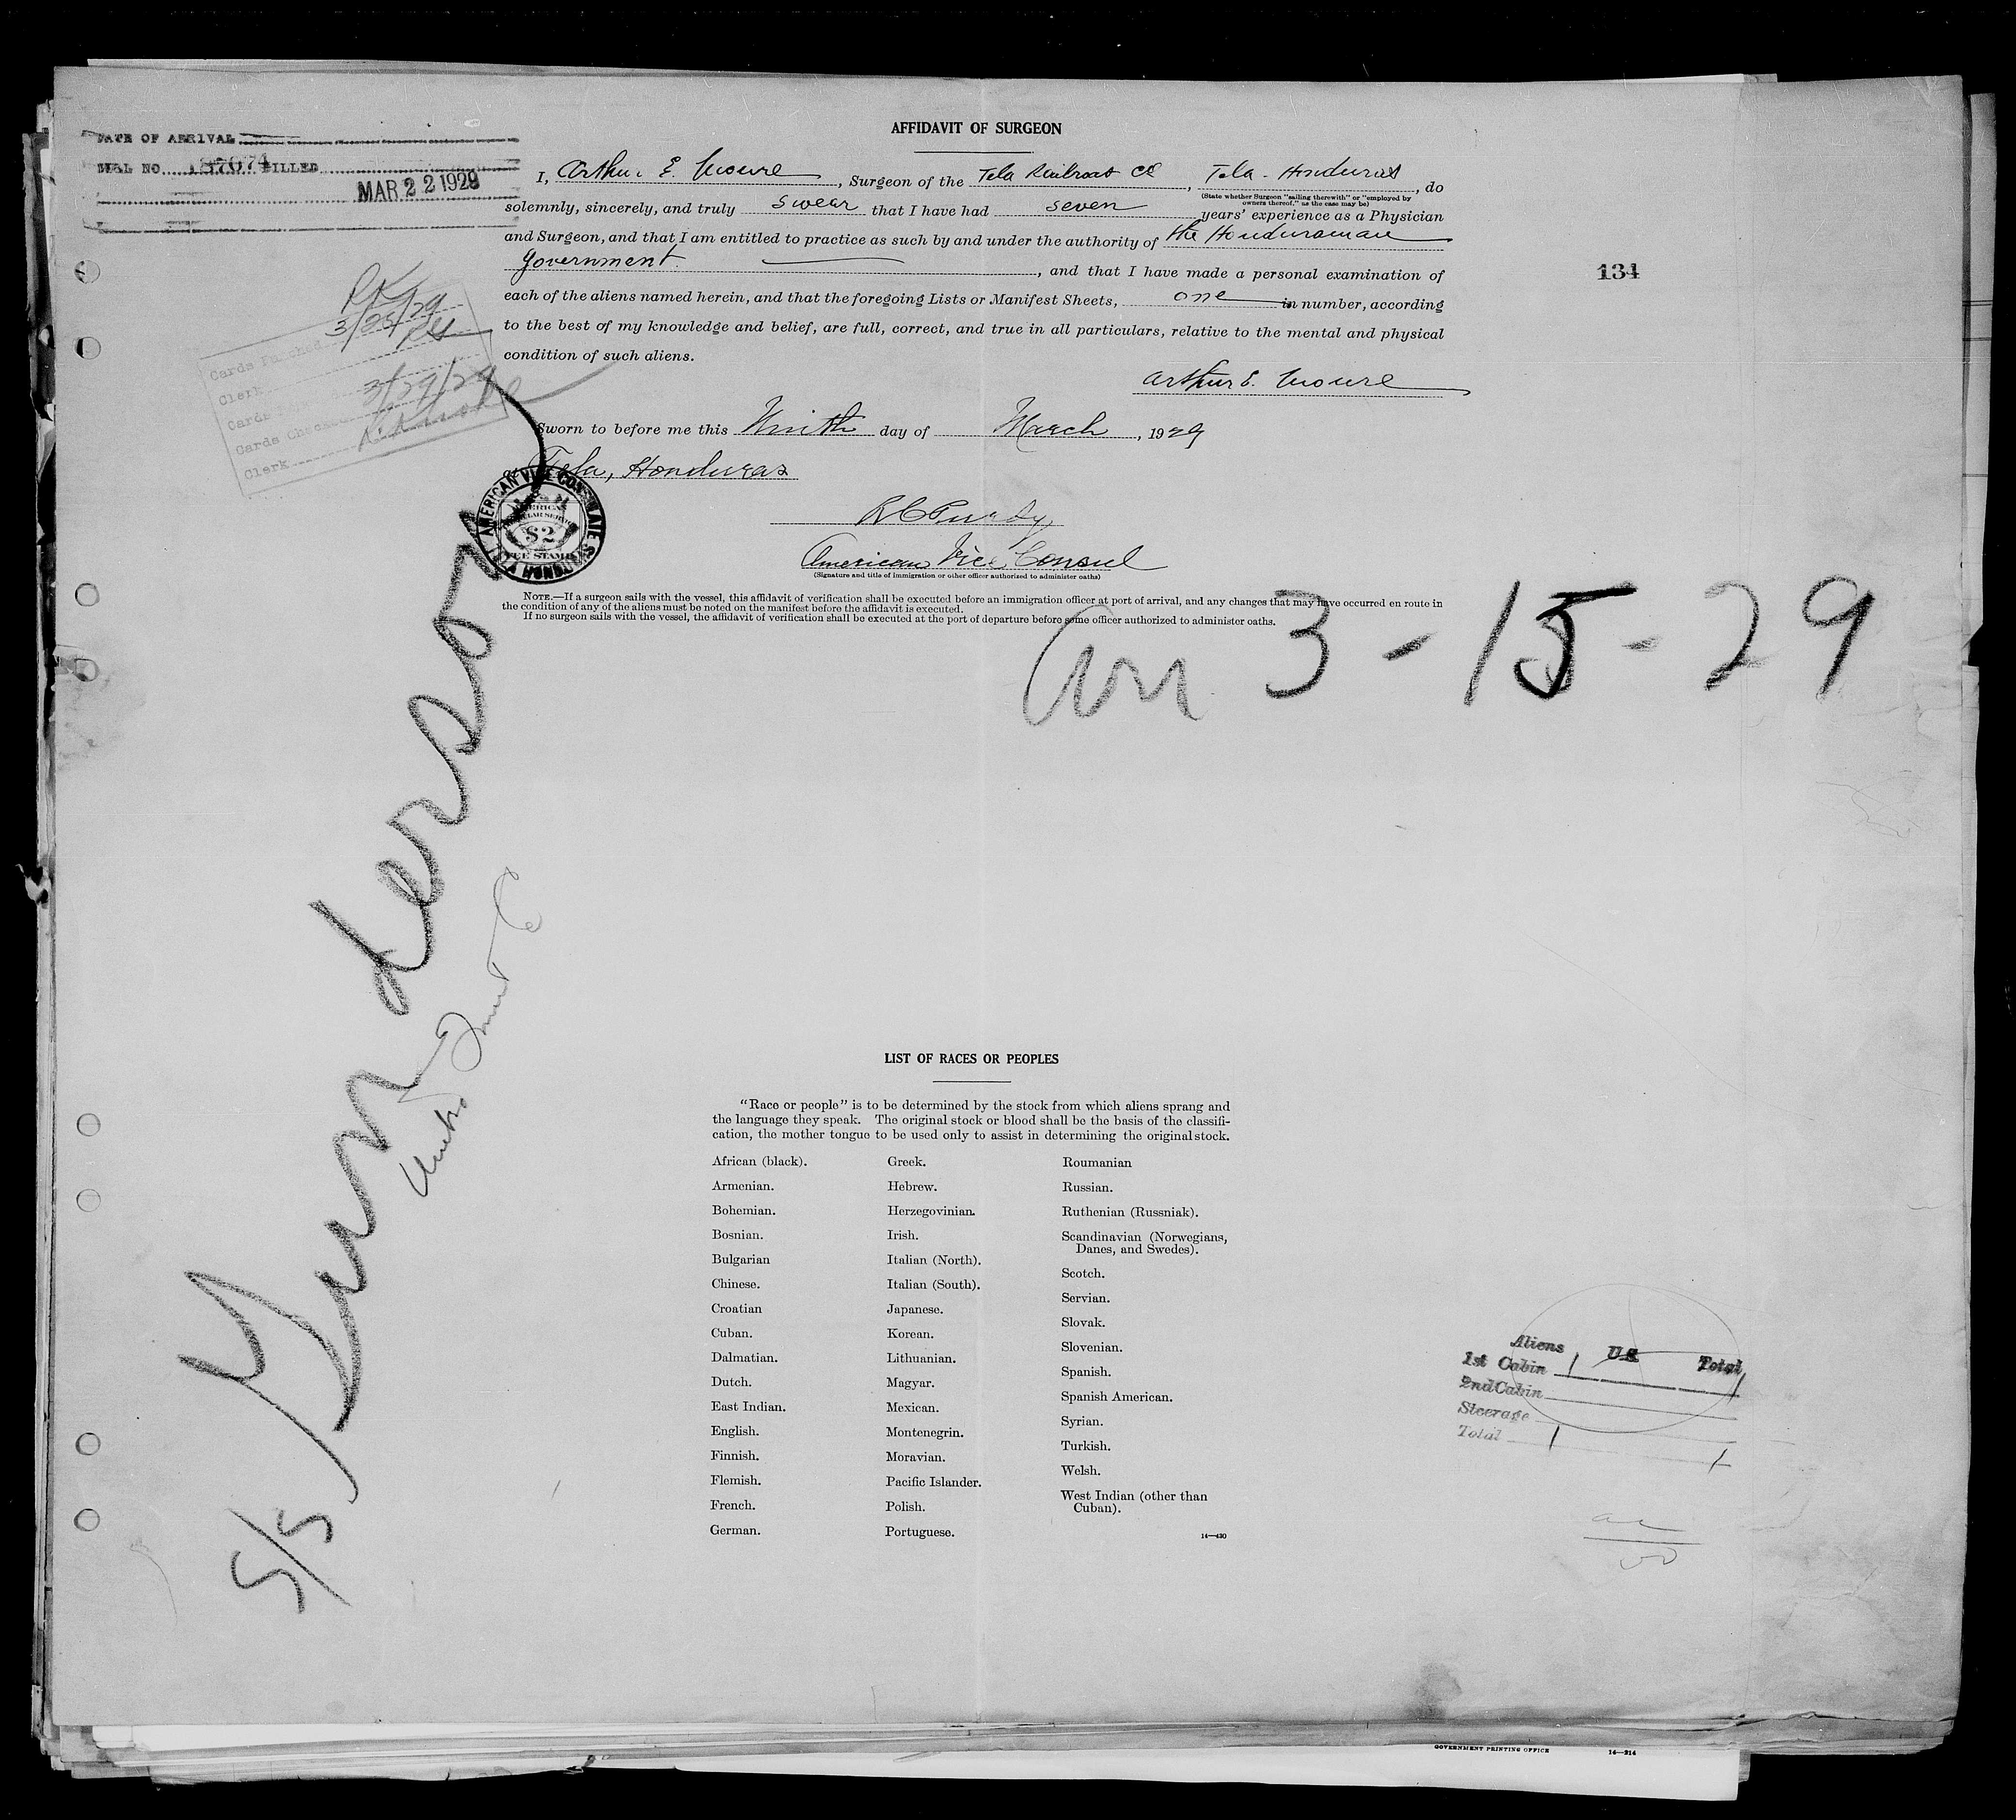 AFFIDAVIT OF SURGEON
DATE OF ARRIVAL
SERL NO. 187674 FILLED
MAR 22 1929
I, Arthur E. Moure, Surgeon of the Tela Railroad Co, Tela - Honduras, do
(State whether Surgeon "sailing therewith" or "employed by owners thereof," as the case may be)
solemnly, sincerely, and truly swear that I have had seven years' experience as a Physician
and Surgeon, and that I am entitled to practice as such by and under the authority of the Honduranean
Government, and that I have made a personal examination of
each of the aliens named herein, and that the foregoing Lists or Manifest Sheets, one in number, according
to the best of my knowledge and belief, are full, correct, and true in all particulars, relative to the mental and physical
condition of such aliens.
Arthur E. Moure
134
3/25/29
Cards Punched
Clerk
Cards
3/29/29
Cards Checked
Clerk
Sworn to before me this Ninth day of March, 1929
Tela, Honduras
American Vice Consul
(Signature and title of immigration or other officer authorized to administer oaths)
AMERICAN VICE CONSULATE
HONDURAS
$2
FEE STAMP
NOTE.—If a surgeon sails with the vessel, this affidavit of verification shall be executed before an immigration officer at port of arrival, and any changes that may have occurred en route in
the condition of any of the aliens must be noted on the manifest before the affidavit is executed.
If no surgeon sails with the vessel, the affidavit of verification shall be executed at the port of departure before some officer authorized to administer oaths.
3-15-29
S/S Gunderson
LIST OF RACES OR PEOPLES
"Race or people" is to be determined by the stock from which aliens sprang and
the language they speak. The original stock or blood shall be the basis of the classifi-
cation, the mother tongue to be used only to assist in determining the original stock.
African (black).
Armenian.
Bohemian.
Bosnian.
Bulgarian
Chinese.
Croatian
Cuban.
Dalmatian.
Dutch.
East Indian.
English.
Finnish.
Flemish.
French.
German.
Greek.
Hebrew.
Herzegovinian.
Irish.
Italian (North).
Italian (South).
Japanese.
Korean.
Lithuanian.
Magyar.
Mexican.
Montenegrin.
Moravian.
Pacific Islander.
Polish.
Portuguese.
Roumanian
Russian.
Ruthenian (Russniak).
Scandinavian (Norwegians,
Danes, and Swedes).
Scotch.
Servian.
Slovak.
Slovenian.
Spanish.
Spanish American.
Syrian.
Turkish.
Welsh.
West Indian (other than
Cuban).
14—430
Aliens US Total
1st Cabin 1 1
2nd Cabin
Steerage
Total 1 1
GOVERNMENT PRINTING OFFICE 14—214